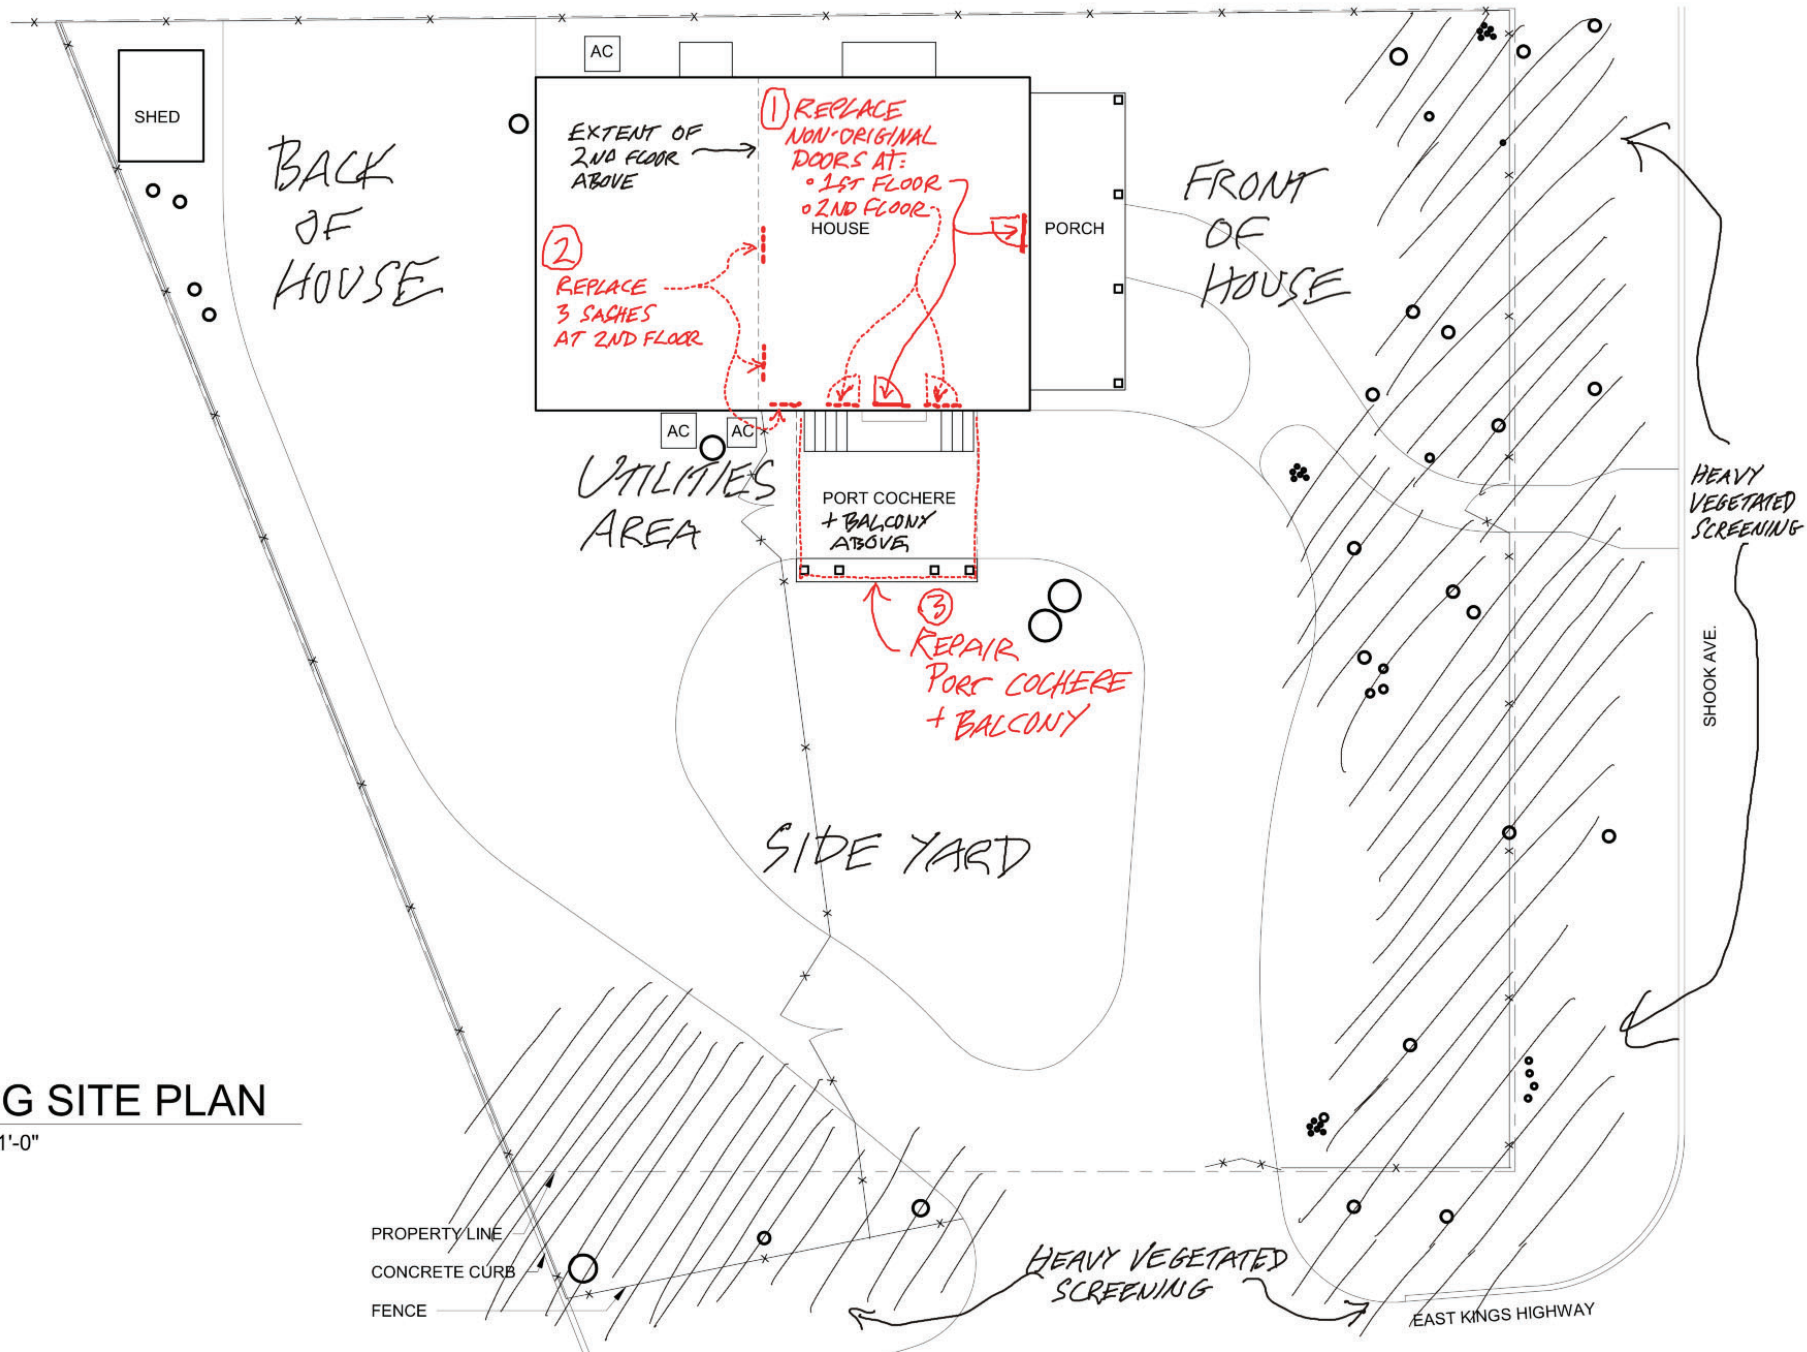 AC
SHED
BACK
OF
HOUSE
EXTENT OF
2ND FLOOR
ABOVE
1 REPLACE
NON-ORIGINAL
DOORS AT:
• 1ST FLOOR
• 2ND FLOOR
HOUSE
PORCH
FRONT
OF
HOUSE
2
REPLACE
3 SASHES
AT 2ND FLOOR
AC
AC
UTILITIES
AREA
PORT COCHERE
+ BALCONY
ABOVE
3
REPAIR
PORT COCHERE
+ BALCONY
HEAVY
VEGETATED
SCREENING
SHOOK AVE.
SIDE YARD
G SITE PLAN
1'-0"
PROPERTY LINE
CONCRETE CURB
FENCE
HEAVY VEGETATED
SCREENING
EAST KINGS HIGHWAY